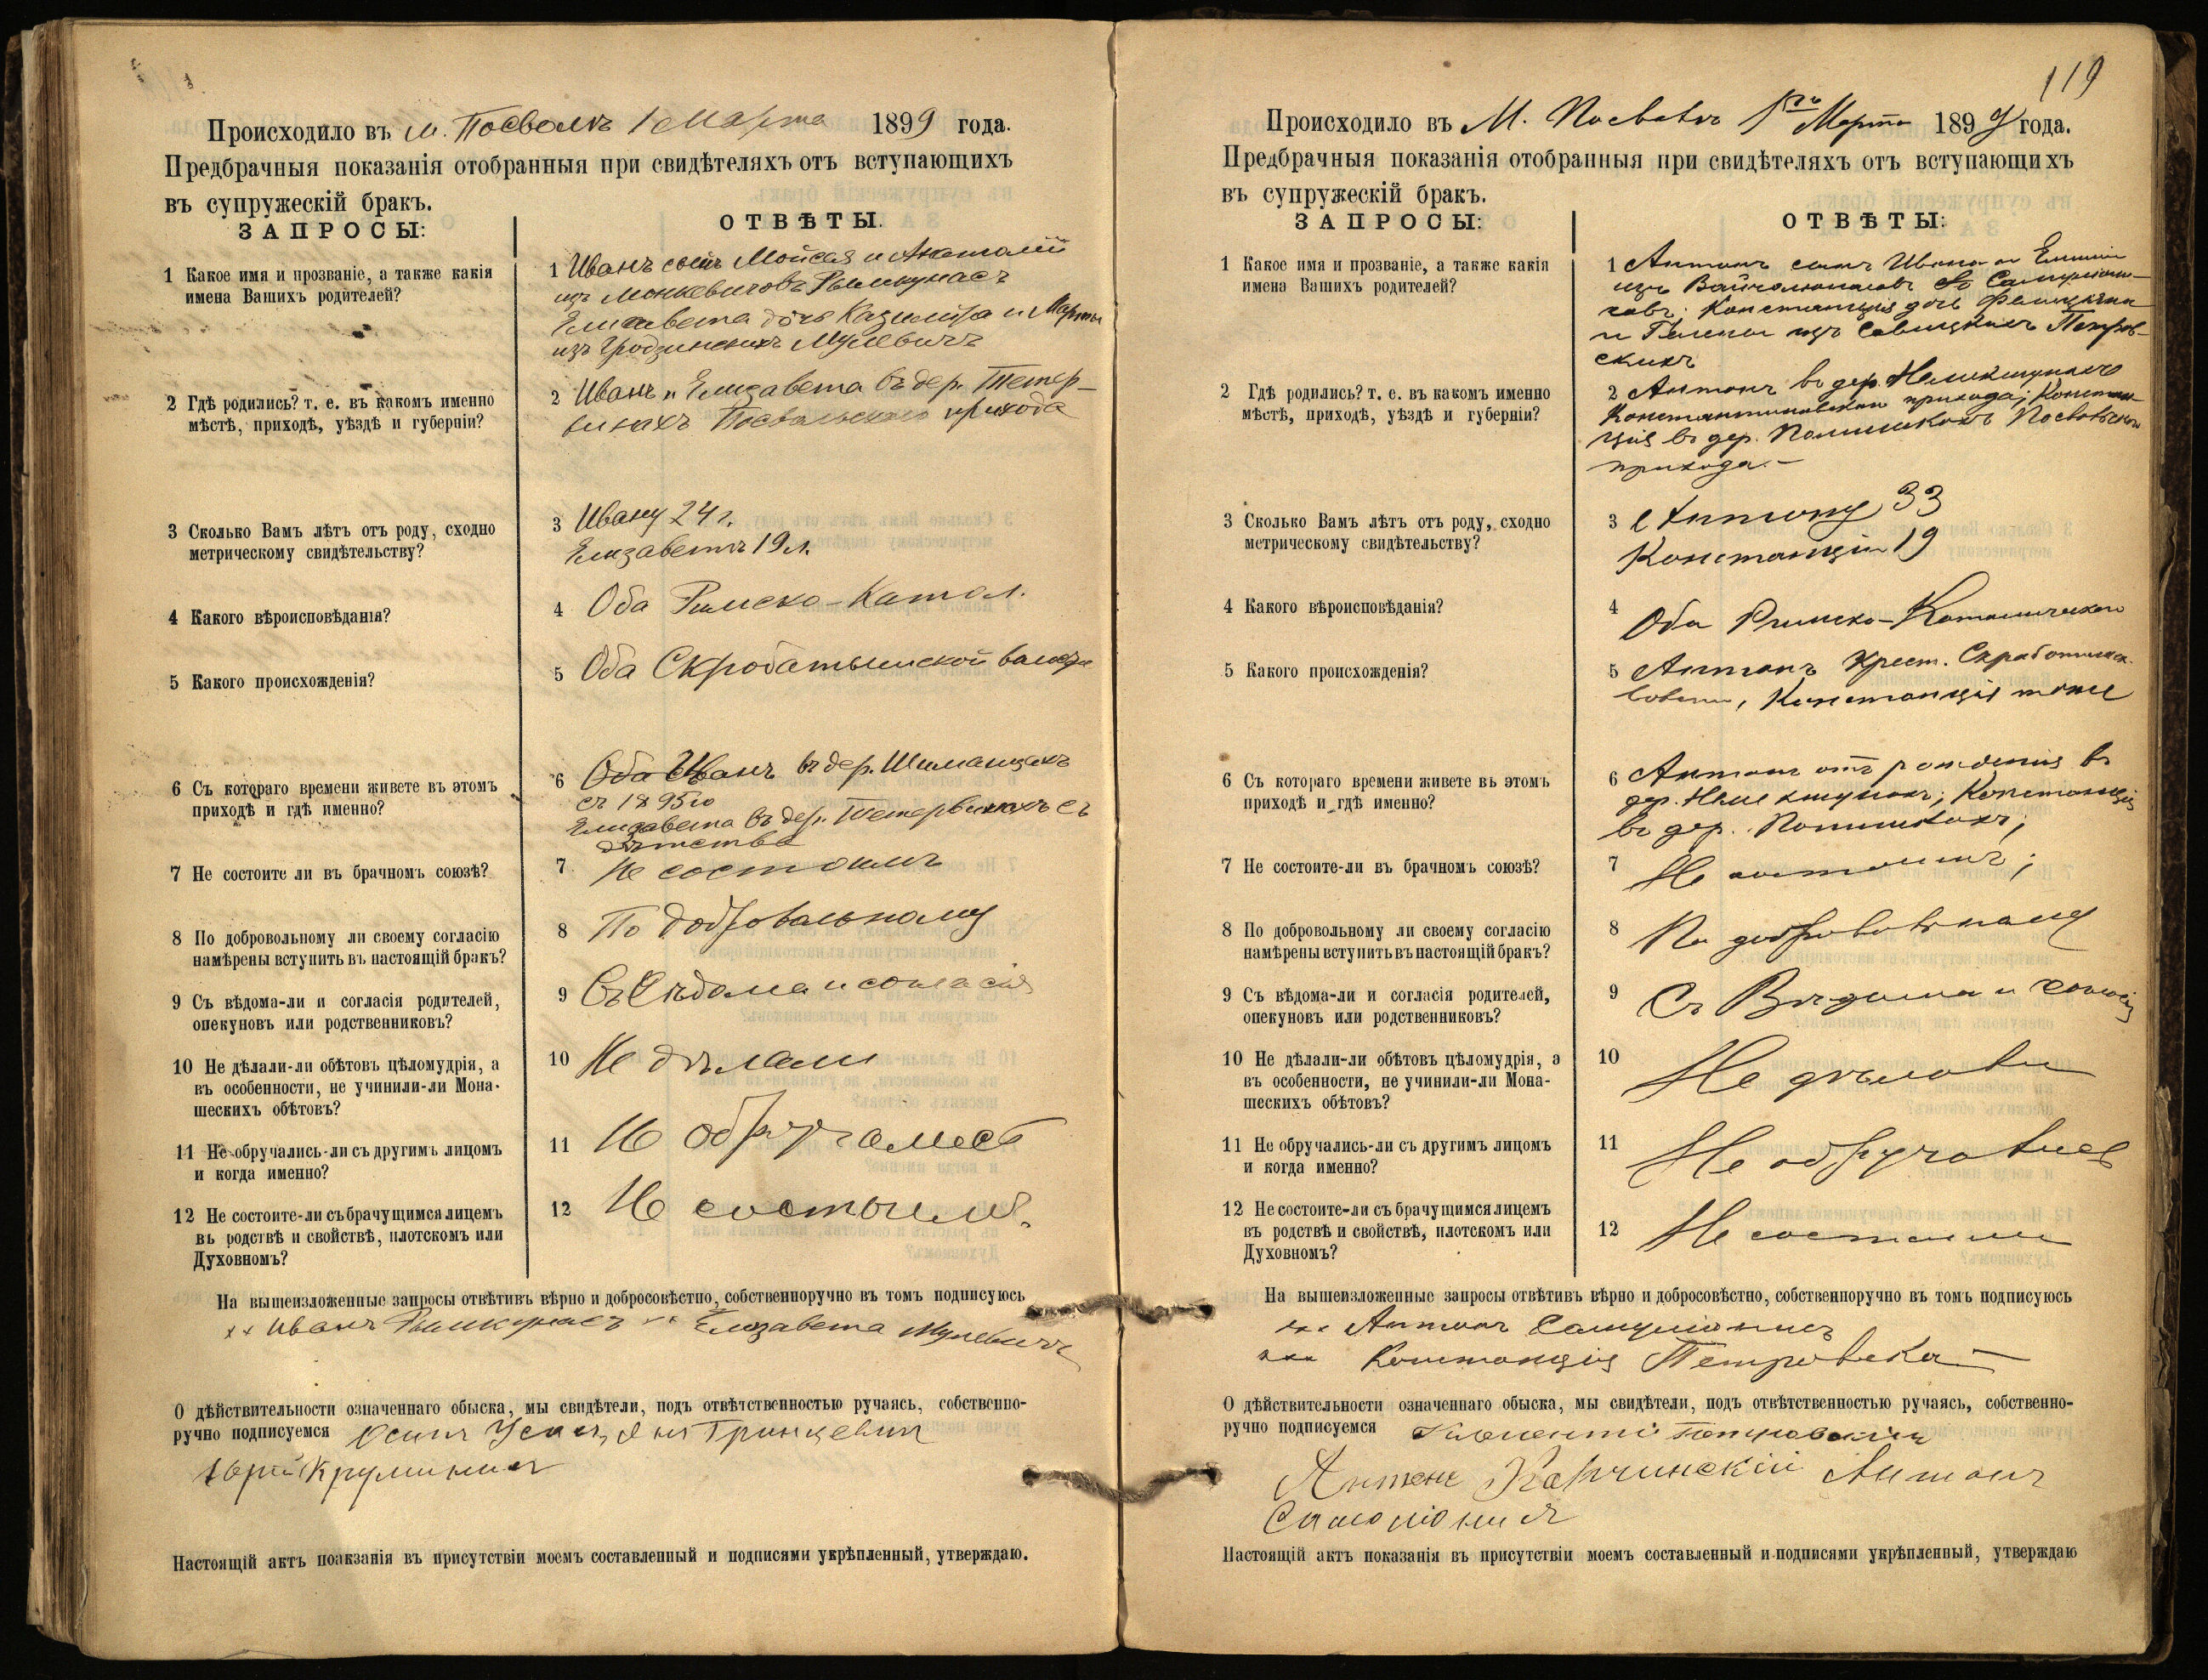 Происходило въ м. Посволѣ 1 Марта 1899 года.
Предбрачныя показанія отобранныя при свидѣтеляхъ отъ вступающихъ
въ супружескій бракъ.
ЗАПРОСЫ:
ОТВѢТЫ.
1 Какое имя и прозваніе, а также какія
имена Вашихъ родителей?
1 Иванъ сынъ Мойсея и Анастазіи
изъ Монкевичовъ Рымкунасъ
Елисавета дочь Казимира и Марты
изъ Гродзинскихъ Мулевичъ
2 Гдѣ родились? т. е. въ какомъ именно
мѣстѣ, приходѣ, уѣздѣ и губерніи?
2 Иванъ и Елизавета въ дер. Тетер-
винахъ Посвольскаго прихода
3 Сколько Вамъ лѣтъ отъ роду, сходно
метрическому свидѣтельству?
3 Ивану 24 г.
Елизаветѣ 19 л.
4 Какого вѣроисповѣданія?
4 Оба Римско-Катол.
5 Какого происхожденія?
5 Оба Скробатышской волости
6 Съ котораго времени живете въ этомъ
приходѣ и гдѣ именно?
6 Оба Иванъ въ дер. Шиманцахъ
съ 1895 го
Елизавета въ дер. Тетервинахъ съ
дѣтства
7 Не состоите ли въ брачномъ союзѣ?
7 Не состоимъ
8 По добровольному ли своему согласію
намѣрены вступить въ настоящій бракъ?
8 По добровольному
9 Съ вѣдома-ли и согласія родителей,
опекуновъ или родственниковъ?
9 Съ вѣдома и согласія
10 Не дѣлали-ли обѣтовъ цѣломудрія, а
въ особенности, не учинили-ли Мона-
шескихъ обѣтовъ?
10 Не дѣлали
11 Не обручались-ли съ другимъ лицомъ
и когда именно?
11 Не обручались
12 Не состоите-ли съ брачущимся лицемъ
въ родствѣ и свойствѣ, плотскомъ или
Духовномъ?
12 Не состоимъ.
На вышеизложенные запросы отвѣтивъ вѣрно и добросовѣстно, собственноручно въ томъ подписуюсь
×× Иванъ Рымкунасъ ×× Елизавета Мулевичъ
О дѣйствительности означеннаго обыска, мы свидѣтели, подъ отвѣтственностью ручаясь, собственно-
ручно подписуемся Осипъ Гринцевич
Юрій Круминис
Настоящій актъ поакзанія въ присутствіи моемъ составленный и подписями укрѣпленный, утверждаю.
119
Происходило въ М. Посволѣ 1го Марта 1899 года.
Предбрачныя показанія отобранныя при свидѣтеляхъ отъ вступающихъ
въ супружескій бракъ.
ЗАПРОСЫ:
ОТВѢТЫ:
1 Какое имя и прозваніе, а также какія
имена Вашихъ родителей?
1 Антонъ сынъ Ивана и
изъ
Констанція дочь Фелиціяна
и Гелены изъ Савицкихъ Петров-
скихъ
2 Гдѣ родились? т. е. въ какомъ именно
мѣстѣ, приходѣ, уѣздѣ и губерніи?
2 Антонъ въ дер.
Константиновскаго прихода; Констан-
ція въ дер. Посвольскаго
прихода. —
3 Сколько Вамъ лѣтъ отъ роду, сходно
метрическому свидѣтельству?
3 Антону 33
Констанціи 19
4 Какого вѣроисповѣданія?
4 Оба Римско-Католическаго
5 Какого происхожденія?
5 Антонъ Крест.
Констанція тоже
6 Съ котораго времени живете въ этомъ
приходѣ и гдѣ именно?
6 Антонъ отъ рожденія въ
дер. Констанція
въ дер.
7 Не состоите-ли въ брачномъ союзѣ?
7 Не состоимъ;
8 По добровольному ли своему согласію
намѣрены вступить въ настоящій бракъ?
8 По добровольному
9 Съ вѣдома-ли и согласія родителей,
опекуновъ или родственниковъ?
9 Съ Вѣдома и согласія
10 Не дѣлали-ли обѣтовъ цѣломудрія, а
въ особенности, не учинили-ли Мона-
шескихъ обѣтовъ?
10 Не дѣлали
11 Не обручались-ли съ другимъ лицомъ
и когда именно?
11 Не обручались
12 Не состоите-ли съ брачущимся лицемъ
въ родствѣ и свойствѣ, плотскомъ или
Духовномъ?
12 Не состоимъ
На вышеизложенные запросы отвѣтивъ вѣрно и добросовѣстно, собственноручно въ томъ подписуюсь
××× Антонъ
××× Констанція Петровска —
О дѣйствительности означеннаго обыска, мы свидѣтели, подъ отвѣтственностью ручаясь, собственно-
ручно подписуемся
Антонъ Антонъ
Настоящій актъ показанія въ присутствіи моемъ составленный и подписями укрѣпленный, утверждаю